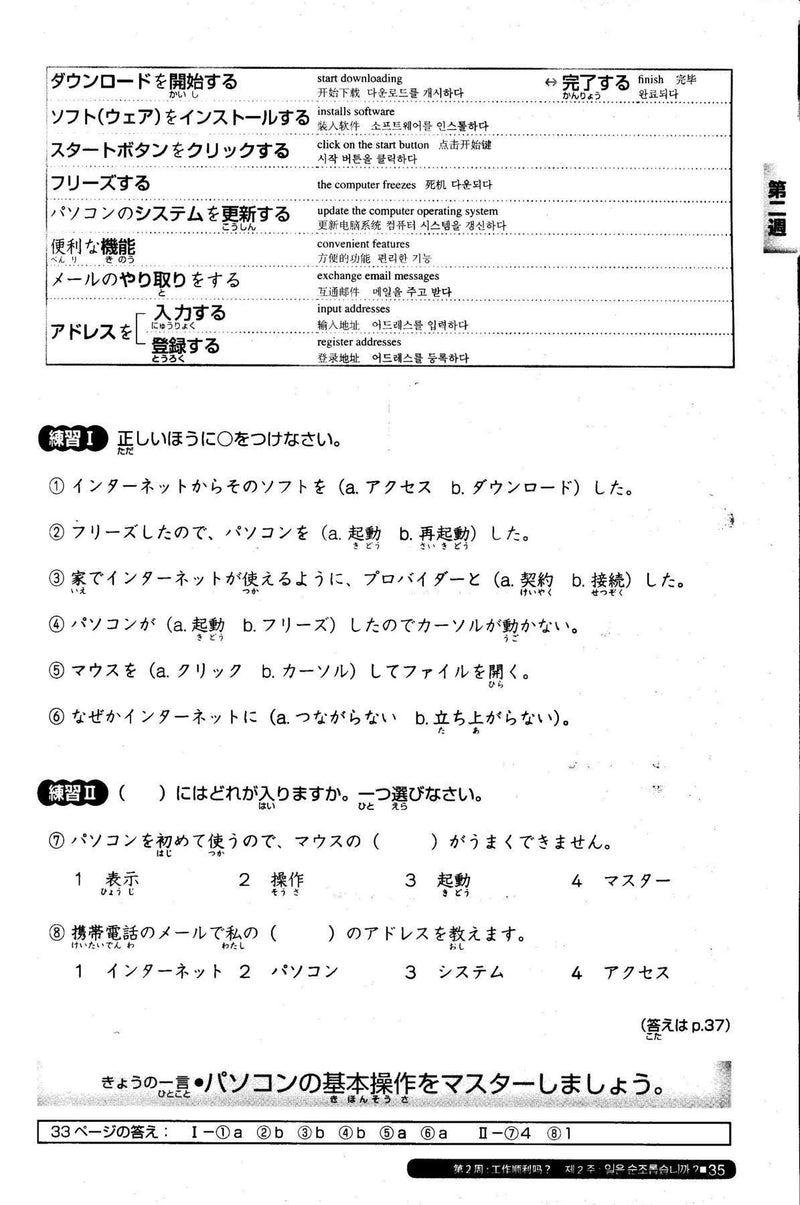 ダウンロードを開始する start downloading ⇔ 完了する finish 完毕
かいし 开始下载 다운로드를 개시하다 かんりょう 완료되다
ソフト(ウェア)をインストールする installs software
装入软件 소프트웨어를 인스톨하다
スタートボタンをクリックする click on the start button 点击开始键
시작 버튼을 클릭하다
フリーズする the computer freezes 死机 다운되다
パソコンのシステムを更新する update the computer operating system
こうしん 更新电脑系统 컴퓨터 시스템을 갱신하다
便利な機能 convenient features
べんり きのう 方便的功能 편리한 기능
メールのやり取りをする exchange email messages
と 互通邮件 메일을 주고 받다
アドレスを 入力する input addresses
にゅうりょく 输入地址 어드레스를 입력하다
登録する register addresses
とうろく 登录地址 어드레스를 등록하다
第二週
練習Ⅰ 正しいほうに○をつけなさい。
ただ
① インターネットからそのソフトを (a. アクセス b. ダウンロード) した。
② フリーズしたので、パソコンを (a. 起動 b. 再起動) した。
きどう さいきどう
③ 家でインターネットが使えるように、プロバイダーと (a. 契約 b. 接続) した。
いえ つか けいやく せつぞく
④ パソコンが (a. 起動 b. フリーズ) したのでカーソルが動かない。
きどう うご
⑤ マウスを (a. クリック b. カーソル) してファイルを開く。
ひら
⑥ なぜかインターネットに (a. つながらない b. 立ち上がらない)。
た あ
練習Ⅱ ( )にはどれが入りますか。一つ選びなさい。
はい ひと えら
⑦ パソコンを初めて使うので、マウスの ( ) がうまくできません。
はじ つか
1 表示 2 操作 3 起動 4 マスター
ひょうじ そうさ きどう
⑧ 携帯電話のメールで私の ( ) のアドレスを教えます。
けいたいでんわ わたし おし
1 インターネット 2 パソコン 3 システム 4 アクセス
(答えは p.37)
こた
きょうの一言●パソコンの基本操作をマスターしましょう。
ひとこと きほんそうさ
33ページの答え： Ⅰ－①a ②b ③b ④b ⑤a ⑥a Ⅱ－⑦4 ⑧1
第2周：工作顺利吗？ 제2주：일은 순조롭습니까？■35